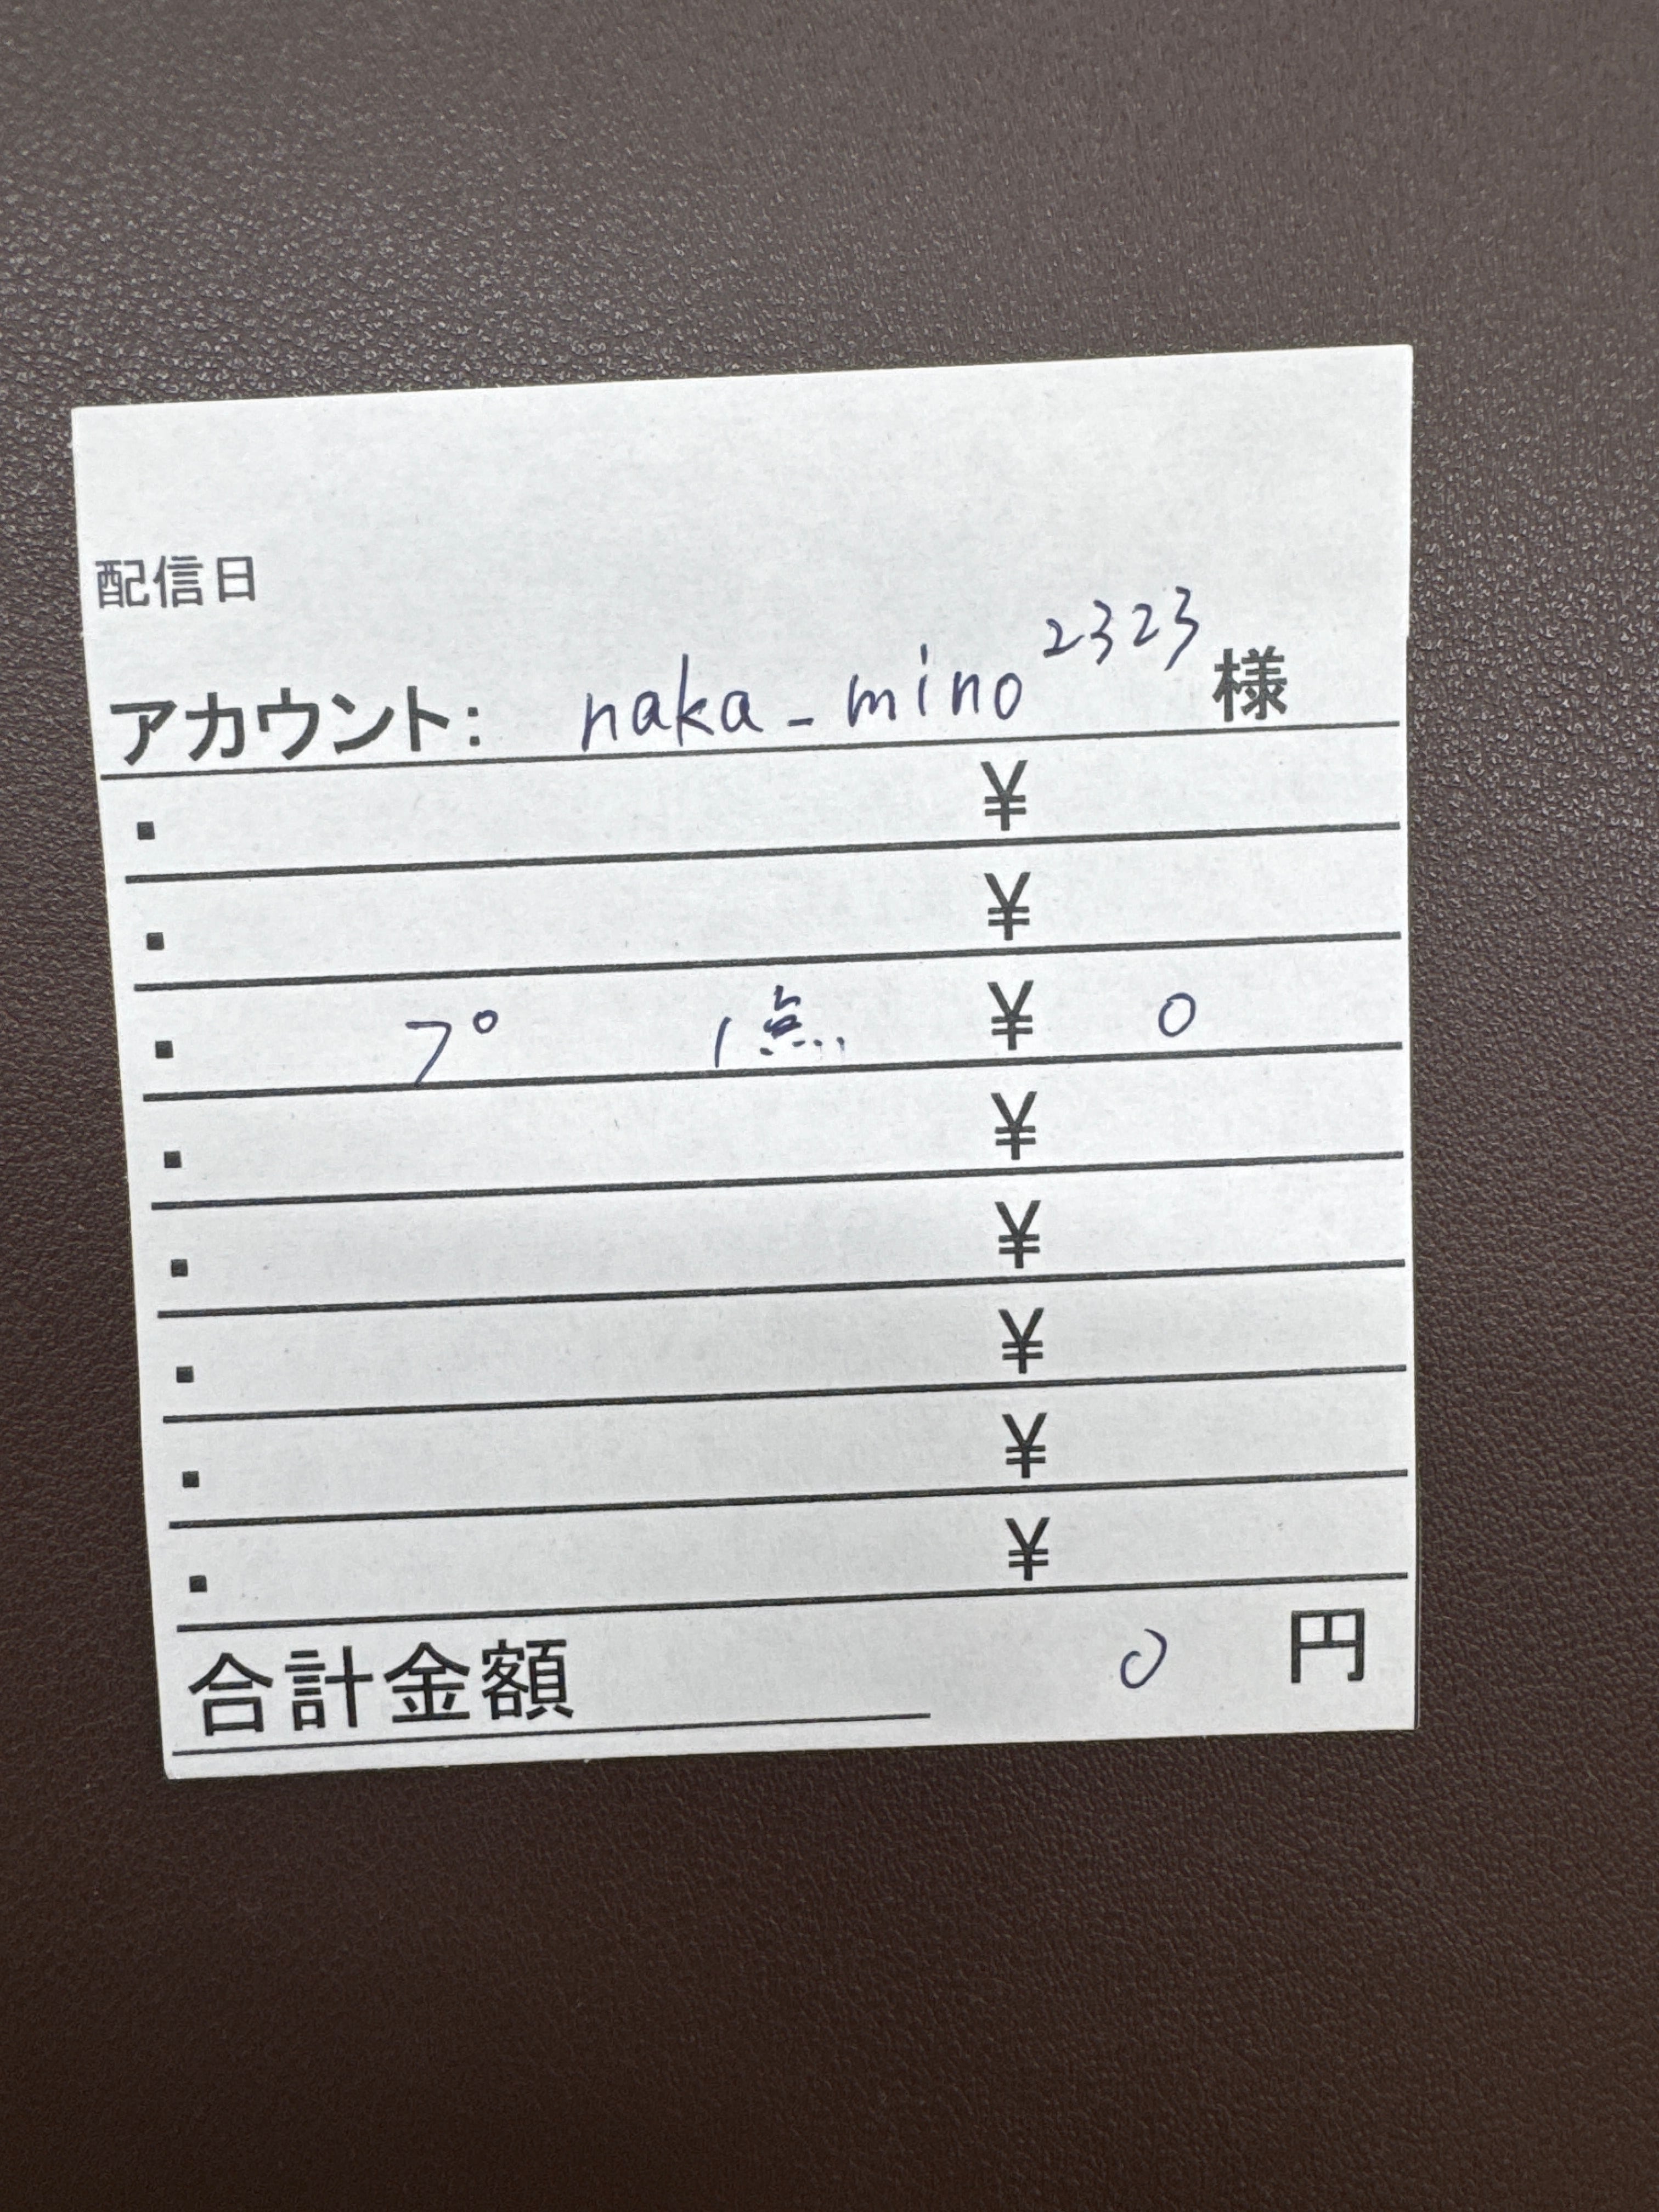 配信日
アカウント: naka_mino2323様
▪ ¥
▪ ¥
▪ プ 1点 ¥ 0
▪ ¥
▪ ¥
▪ ¥
▪ ¥
▪ ¥
合計金額 0 円